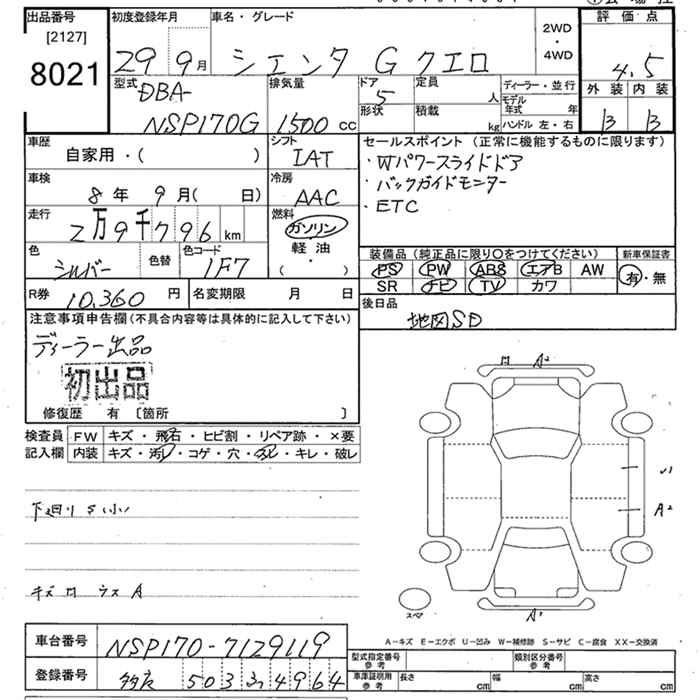 出品番号 [2127] 8021
初度登録年月 29 9月
車名・グレード シエンタ G クエロ
2WD・4WD
評価点 4.5
外装 B 内装 B
型式 DBA-NSP170G
排気量 1500 cc
ドア 5
形状
定員 人
積載 kg
ディーラー・並行
モデル年式 年
ハンドル 左・右
車歴 自家用・( )
シフト IAT
車検 8年 9月( 日)
冷房 AAC
走行 2万9千796 km
燃料 ガソリン 軽油 ( ・ )
色 シルバー
色替
色コード 1F7
R券 10,360 円
名変期限 月 日
セールスポイント (正常に機能するものに限ります)
・Wパワースライドドア
・バックガイドモニター
・ETC
装備品 (純正品に限り○をつけてください)
PS PW ABS エアB AW
SR ナビ TV カワ
新車保証書
有・無
後日品
地図SD
注意事項申告欄(不具合内容等は具体的に記入して下さい)
ディーラー出品
初出品
修復歴 有 〔箇所 〕
検査員記入欄
FW キズ・飛石・ヒビ割・リペア跡・×要
内装 キズ・汚レ・コゲ・穴・ヌレ・キレ・破レ
下廻りS小
A²
A²
A¹
スペア
A-キズ E-エクボ U-凹み W-補修跡 S-サビ C-腐食 XX-交換済
車台番号 NSP170-7129119
登録番号 503 4964
型式指定番号 参考
類別区分番号 参考
車庫証明用 参考
長さ cm 幅 cm 高さ cm